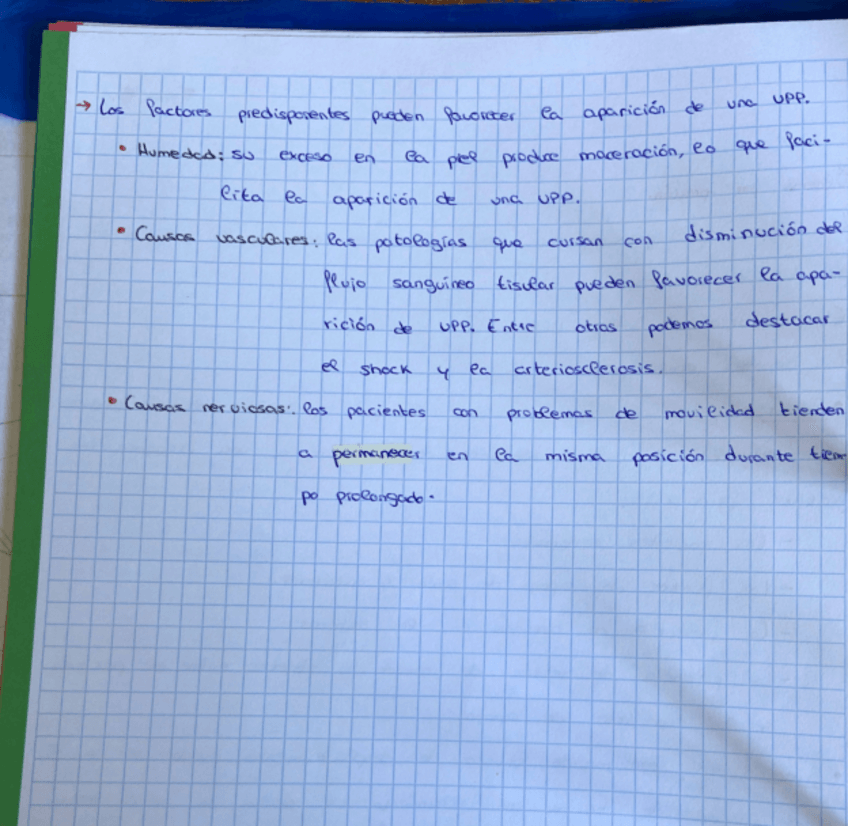 → Los factores predisponentes pueden favorecer la aparición de una UPP.
• Humedad: su exceso en la piel produce maceración, lo que faci-
lita la aparición de una UPP.
• Causas vasculares: las patologías que cursan con disminución del
flujo sanguíneo tisular pueden favorecer la apa-
rición de UPP. Entre otras podemos destacar
el shock y la arteriosclerosis.
• Causas nerviosas: los pacientes con problemas de movilidad tienden
a permanecer en la misma posición durante tiem
po prolongado.